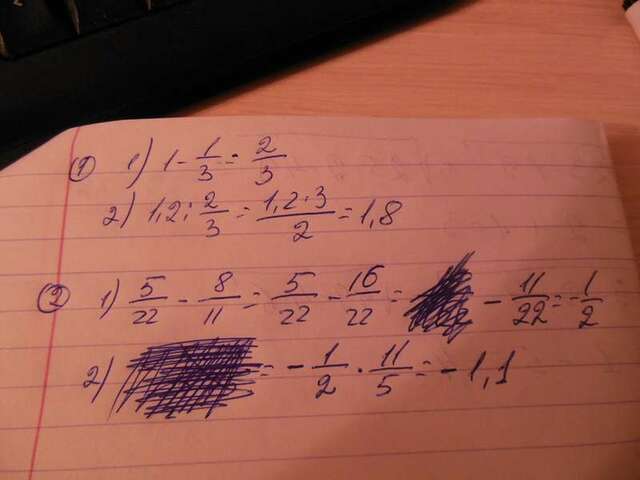 ① 1) 1 - 1/3 = 2/3
2) 1,2 : 2/3 = 1,2·3/2 = 1,8
② 1) 5/22 - 8/11 = 5/22 - 16/22 = - 11/22 = - 1/2
2) = - 1/2 · 11/5 = - 1,1